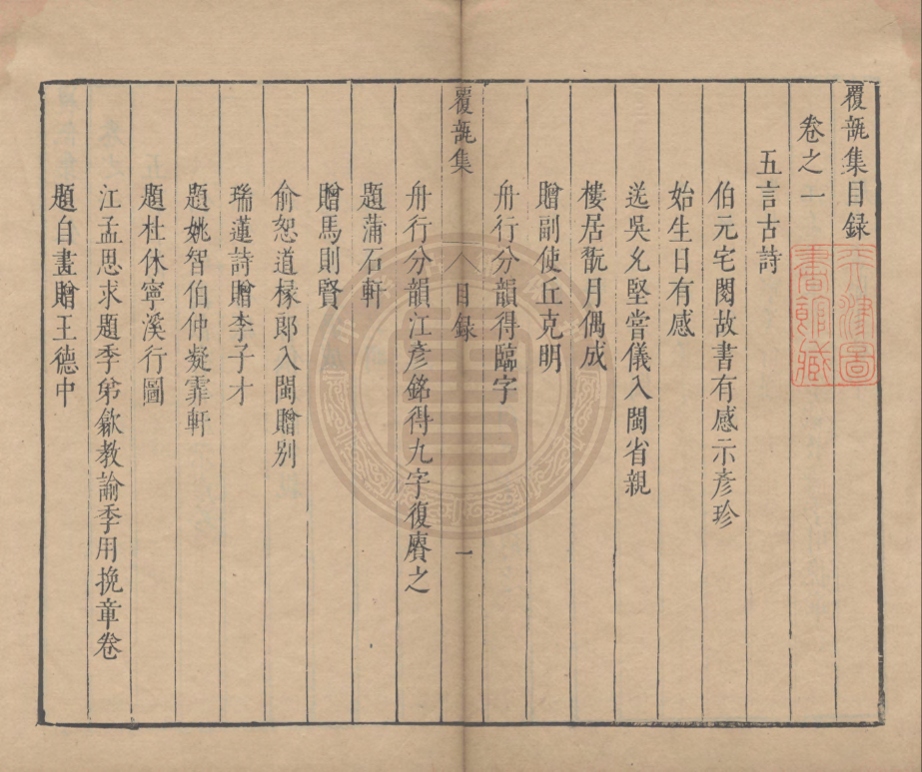 覆瓿集目録
卷之一
五言古詩
伯元宅閱故書有感示彥珍
始生日有感
送吳允堅嘗儀入閩省親
樓居翫月偶成
贈副使丘克明
舟行分韻得臨字
覆瓿集 目録 一
舟行分韻江彥銘得九字復賡之
題蒲石軒
贈馬則賢
俞恕道椽郎入閩贈别
瑞蓮詩贈李子才
題姚智伯仲凝霏軒
題杜休寧溪行圖
江孟思求題季弟歙教諭季用挽章卷
題自畫贈王德中
天津圖
書館藏